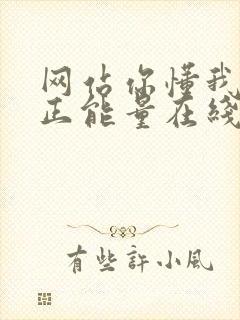 网站你懂我
正能量在线
有些许小风